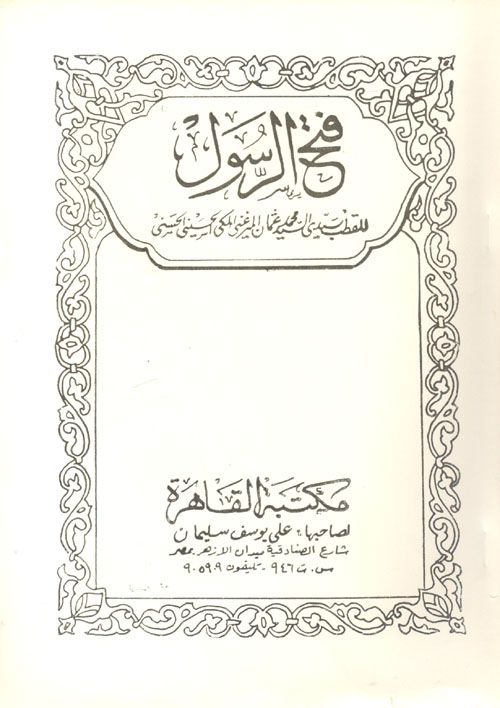 فتح الرسول
للقطب سيدى السيد محمد عثمان الميرغنى المكى الحسينى الحنفى
مكتبة القاهرة
لصاحبها: على يوسف سليمان
شارع الصنادقية بميدان الازهر بمصر
س.ت ٩٤٦ - تليفون ٩٠٥٩٠٩